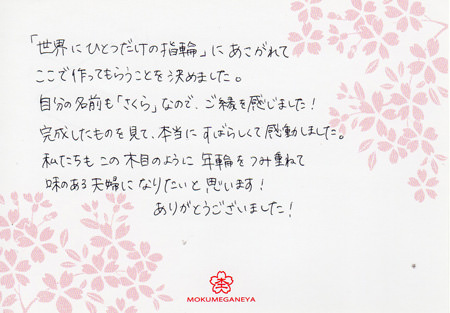 「世界にひとつだけの指輪」にあこがれて
ここで作ってもらうことを決めました。
自分の名前も「さくら」なので、ご縁を感じました！
完成したものを見て、本当にすばらしくて感動しました。
私たちも この木目のように 年輪をつみ重ねて
味のある夫婦になりたいと思います！
ありがとうございました！
MOKUMEGANEYA